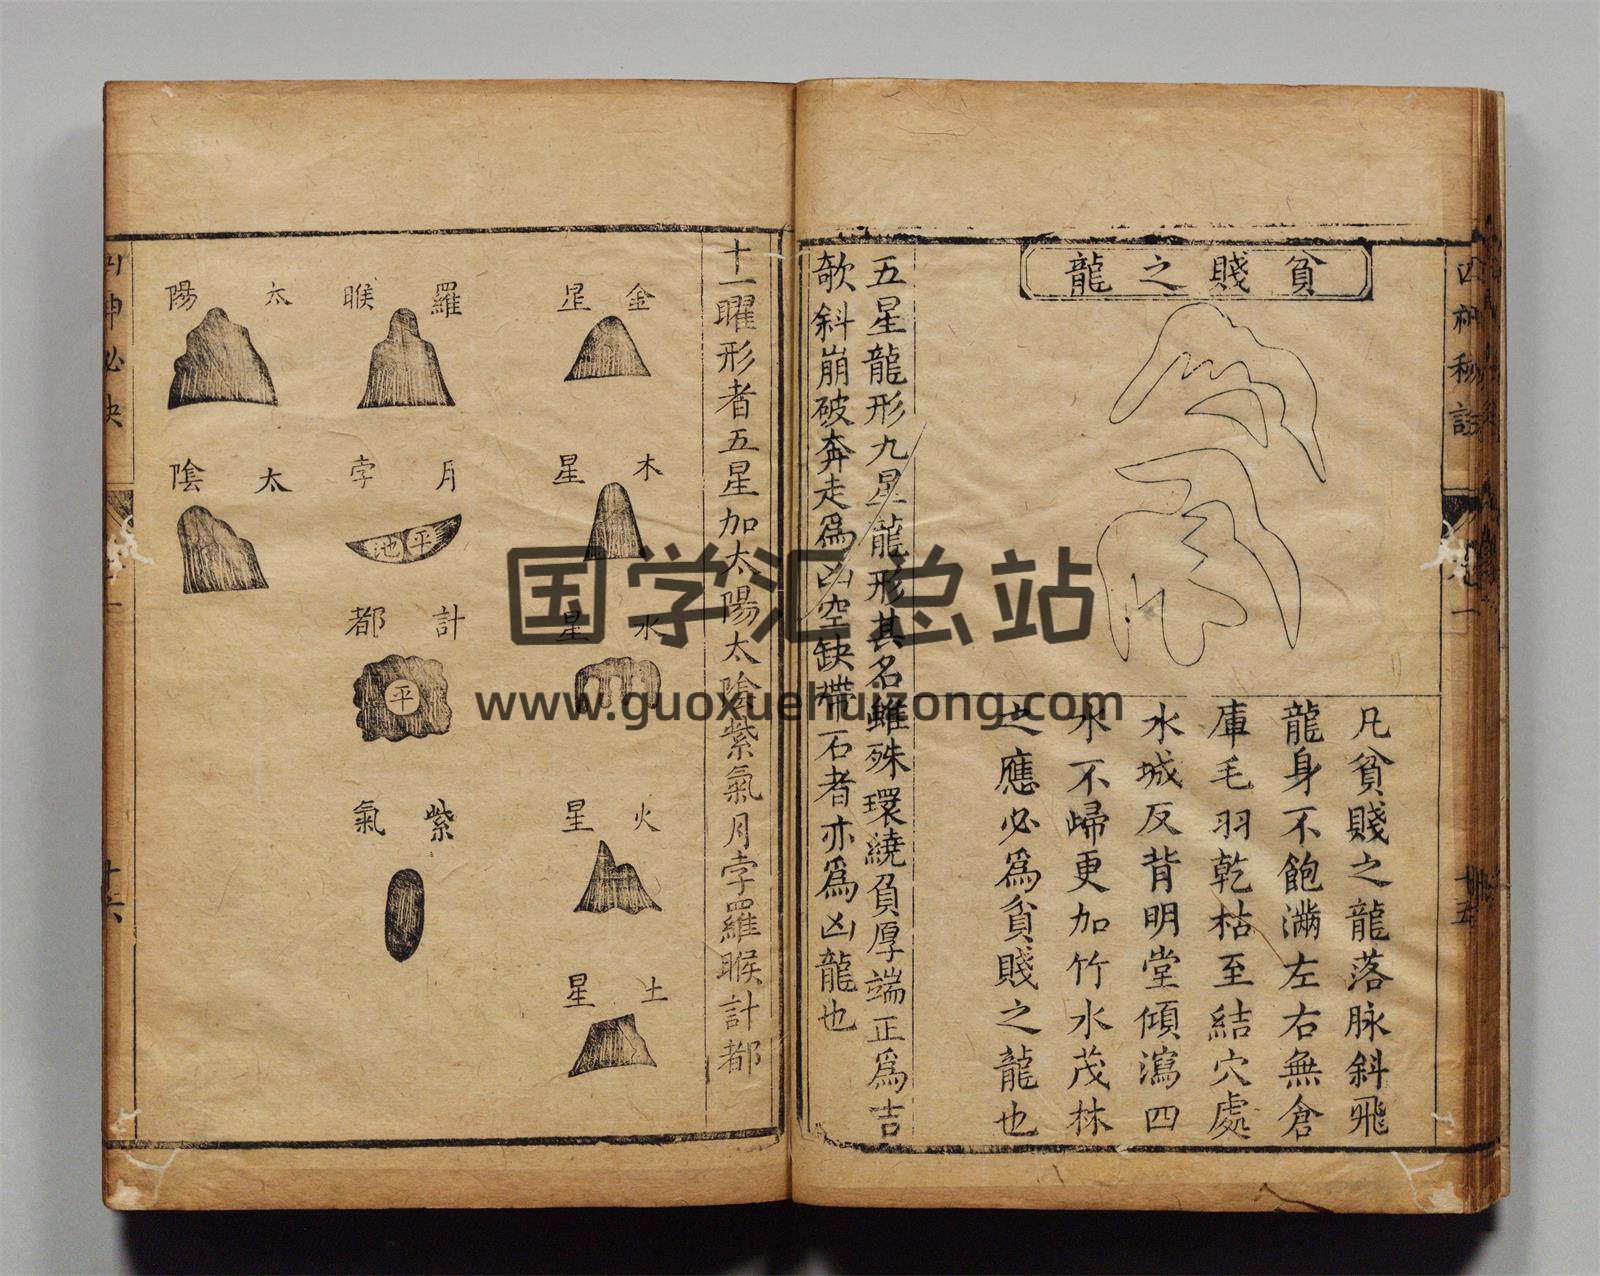 貧賤之龍
凡貧賤之龍落脉斜飛
龍身不飽滿左右無倉
庫毛羽乾枯至結穴處
水城反背明堂傾瀉四
水不歸更加竹水茂林
之應必爲貧賤之龍也
五星龍形九星龍形其名雖殊環繞負厚端正爲吉
欹斜崩破奔走爲凶空缺帶石者亦爲凶龍也
十一曜形者五星加太陽太陰紫氣月孛羅睺計都
金星
木星
水星
火星
土星
羅睺
月孛
平池
計都
平
紫氣
太陽
太陰
十五
十六
国学汇总站
www.guoxuehuizong.com